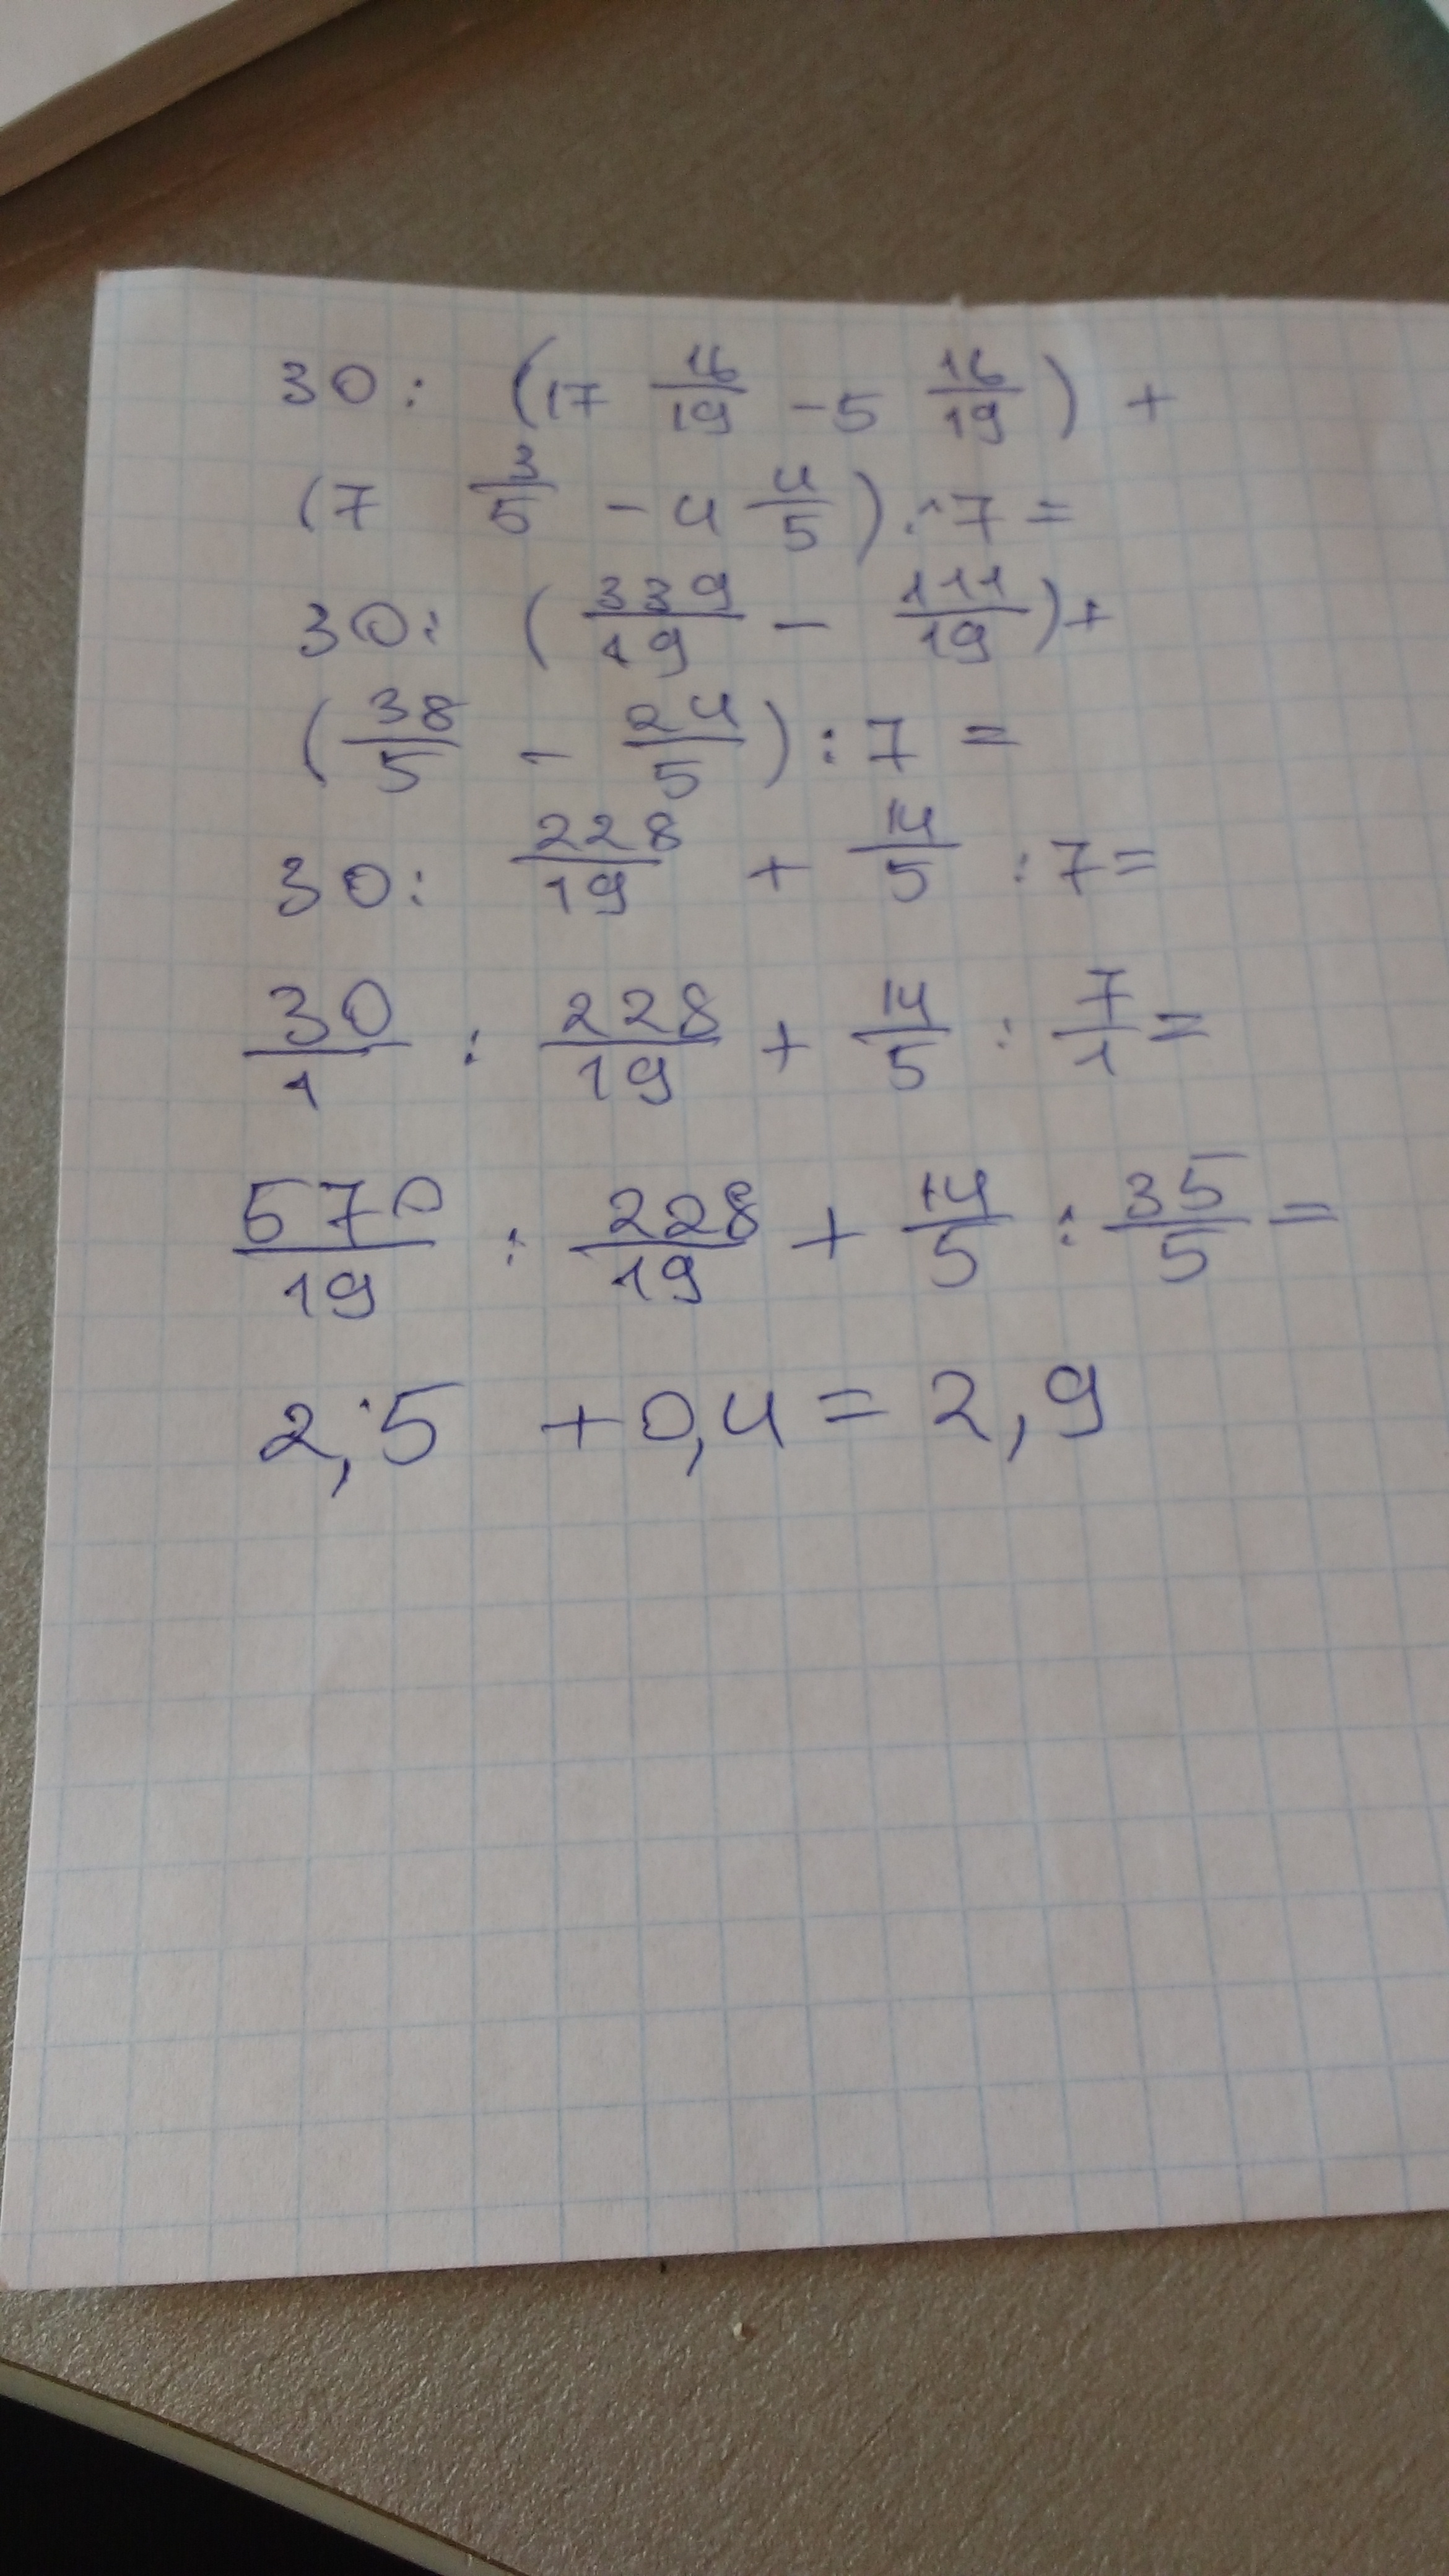 30 : (17 16/19 - 5 16/19) +
(7 3/5 - 4 4/5) : 7 =
30 : (339/19 - 111/19) +
(38/5 - 24/5) : 7 =
30 : 228/19 + 14/5 : 7 =
30/1 : 228/19 + 14/5 : 7/1 =
570/19 : 228/19 + 14/5 : 35/5 =
2,5 + 0,4 = 2,9